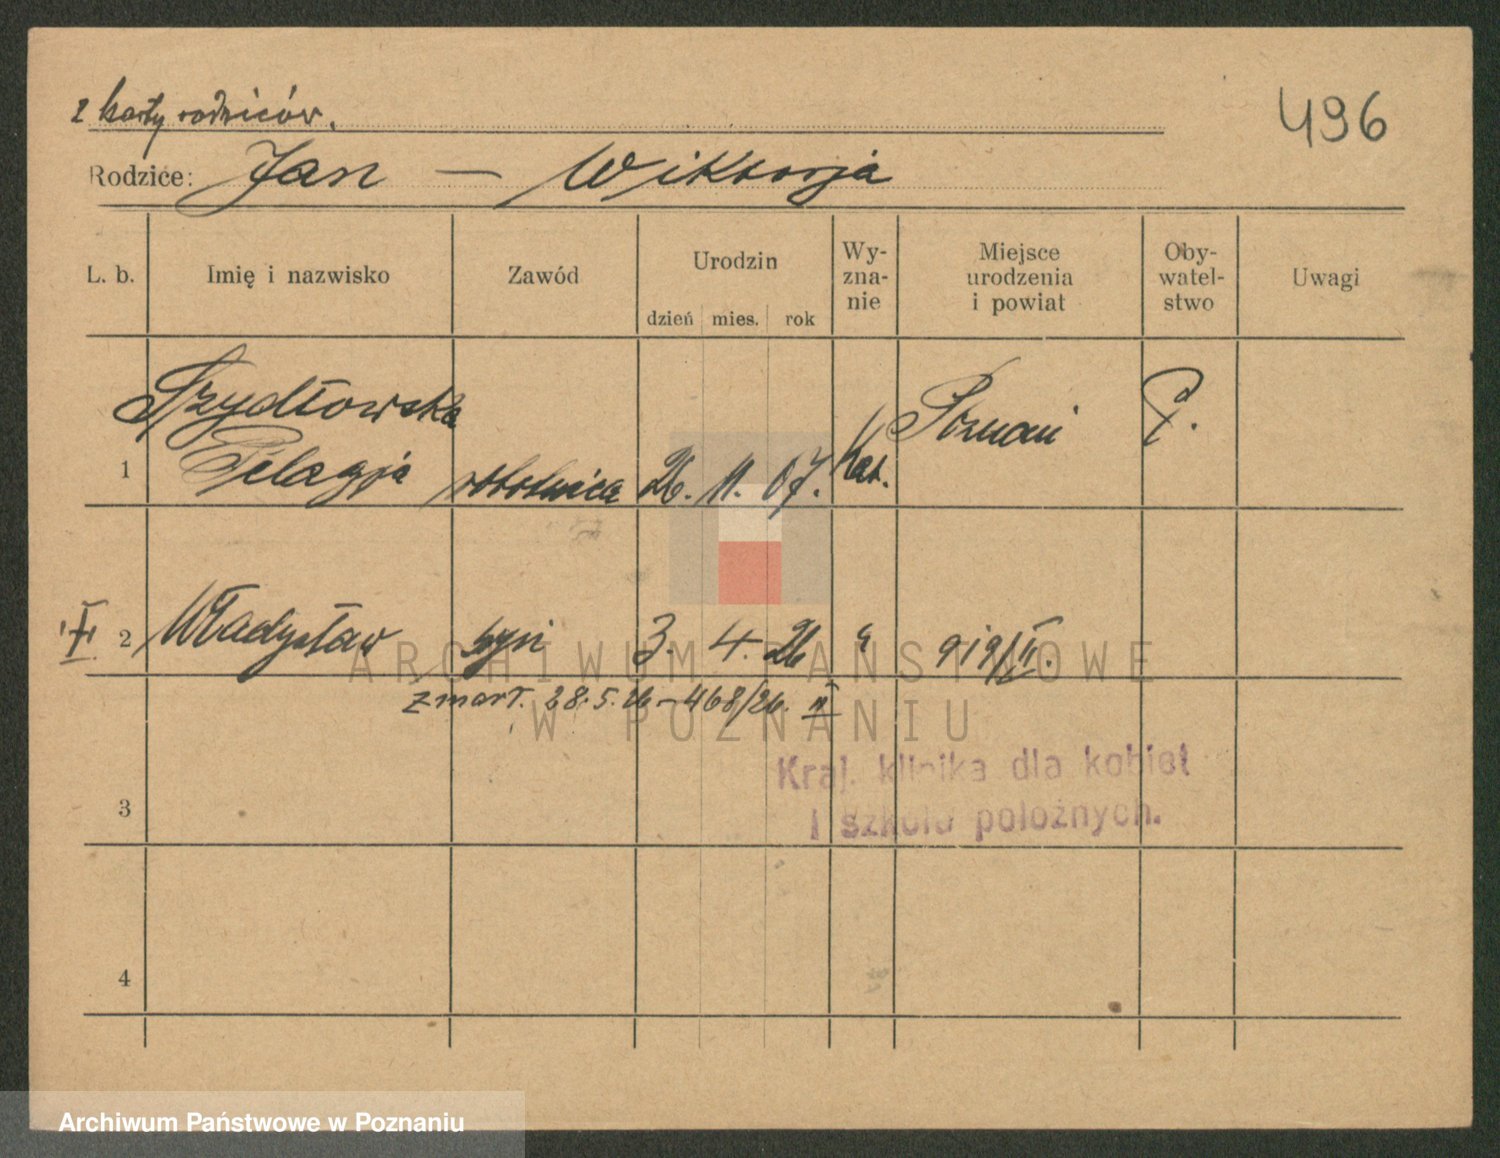 z karty rodziców.
496
Rodzice: Jan — Wiktorja
L. b. Imię i nazwisko Zawód Urodzin dzień mies. rok Wy-zna-nie Miejsce urodzenia i powiat Oby-watel-stwo Uwagi
Szydłowska
1 Pelagja robotnica 26. 11. 07. Kat. Poznań P.
2 Władysław syn 3. 4. 26 " 919/II.
zmarł. 28.5.26 – 468/26. II
ARCHIWUM PAŃSTWOWE
W POZNANIU
Kraj. klinika dla kobiet
i szkoła położnych.
3
4
Archiwum Państwowe w Poznaniu